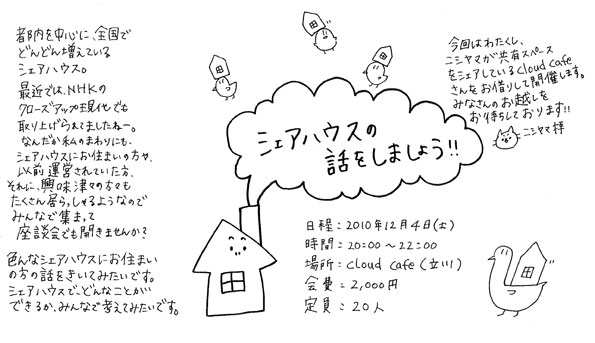 都内を中心に、全国で
どんどん増えている
シェアハウス。
最近では、NHKの
クローズアップ現代でも
取り上げられてましたねー。
なんだか私のまわりにも、
シェアハウスにお住まいの方や、
以前運営されていた方、
それに、興味津々の方々も
たくさん居らっしゃるようなので
みんなで集まって
座談会でも開きませんか?
色んなシェアハウスにお住まい
の方の話をきいてみたいです。
シェアハウスで、どんなことが
できるか、みんなで考えてみたいです。
シェアハウスの
話をしましょう!!
今回はわたくし、
ニシヤマが共有スペース
をシェアしているcloud cafe
さんをお借りして開催します。
みなさんのお越しを
お待ちしております!!
ニシヤマ拝
日程:2010年12月4日(土)
時間:20:00〜22:00
場所:cloud cafe(立川)
会費:2,000円
定員:20人